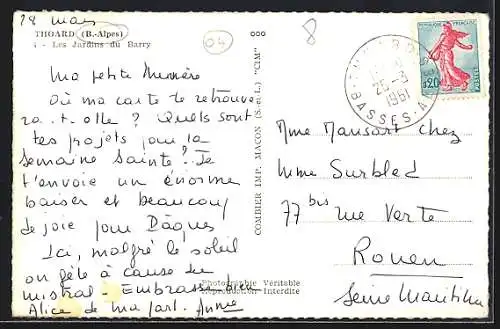 28 mars
THOARD (B.-Alpes)
4 - Les Jardins du Barry
04
8
Ma petite Minière
Où ma carte te retrouve
ra-t-elle ? Quels sont
tes projets pour la
semaine sainte ? Je
t'envoie un énorme
baiser et beaucoup
de joie pour Pâques
Ici, malgré le soleil
on gèle à cause du
mistral - Embrasse bien
Alice de ma part. Annie
COMBIER IMP. MACON (S.-et-L.) "CIM"
Photographie Véritable
Reproduction Interdite
25-3
1961
BASSES-A
REPUBLIQUE FRANÇAISE
0,20
POSTES
Mme Mansart chez
Mme Surbled
77 bis rue Verte
Rouen
Seine Maritime